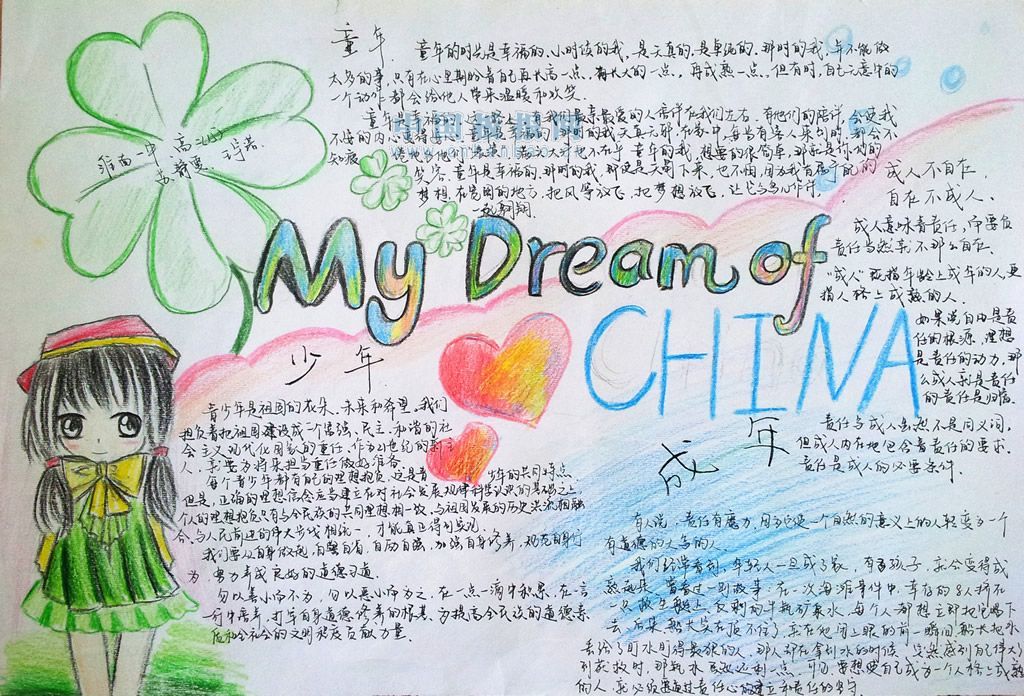 童年
童年的时光是幸福的、小时侯的我、是天真的、是单纯的、那时的我、年不能做
太多的事、只有在心里期盼着自己再长高一点、再长大的一点、再成熟一点、但有时、自己无意中的
一个动作都会给他人带来温暖和欢笑。
童年是幸福的、这一路上、有我们最亲最爱的人陪伴在我们左右、有他们的陪伴、会使我
童年的我、想要的很简单、
笑容、童年是幸福的、那时的我、即使是天塌下来、也不怕、因为我有属于我的
梦想、在宽阔的地方、把风筝放飞、把梦想放飞、让它与鸟儿作伴、
一起翱翔.
高二
My Dream of
CHINA
成人不自在
自在不成人、
成人意味着责任,需要负
责任当然就不那么自在.
"成人"既指年龄上成年的人,更
指人格上成熟的人.
如果说自由是责
任的根源、理想
是责任的动力、那
么成人就是责任
的责任是归宿.
少年
青少年是祖国的花朵、未来和希望。我们
担负着把祖国建设成一个富强、民主、和谐的社
会主义现代化国家的重任、作为21世纪的新主
人、就要为将来担当重任做好准备.
每个青少年都有自己的理想抱负、这是青少年的共同特点
但是、正确的理想信念应当建立在对社会发展规律科学认识的基础之上
个人的理想抱负只有与全民族的共同理想相一致、与祖国发展的历史洪流相融
合、与人民前进的伟大步伐相统一、才能真正得到实现。
我们要从自身做起、自警自省、自励自强、加强自身修养、规范自身行
为、努力养成良好的道德习道.
勿以善小而不为、勿以恶小而为之、在一点一滴中积累、在一言
一行中培养、打牢自身道德修养的根基、为提高全民族的道德素
质和全社会的文明程度贡献力量.
成年
责任与成人虽然不是同义词,
但成人内在地包含着责任的要求.
责任是成人的必要条件.
有人说,责任有魔力,因为它使一个自然的意义上的人转变为一个
有道德的大写的人.
我们经常看到,年轻人一旦成了家、有了孩子,就会变得成
熟起来.曾看过一则故事:在一次海难事件中,幸存的8人挤在
一只救生艇上,仅剩的半瓶矿泉水,每个人都想立即把它喝下
去.后来,船长实在顶不住了,就在他闭上眼的前一瞬间,船长把水
丢给了盯水盯得最狠的人.那人却在拿到水的时候,突然感到自己伟大
到获救时,那瓶水 可见,要想使自己成为一个人格上成熟
的人,就必须要通过责任心的建立和责任的坚守.